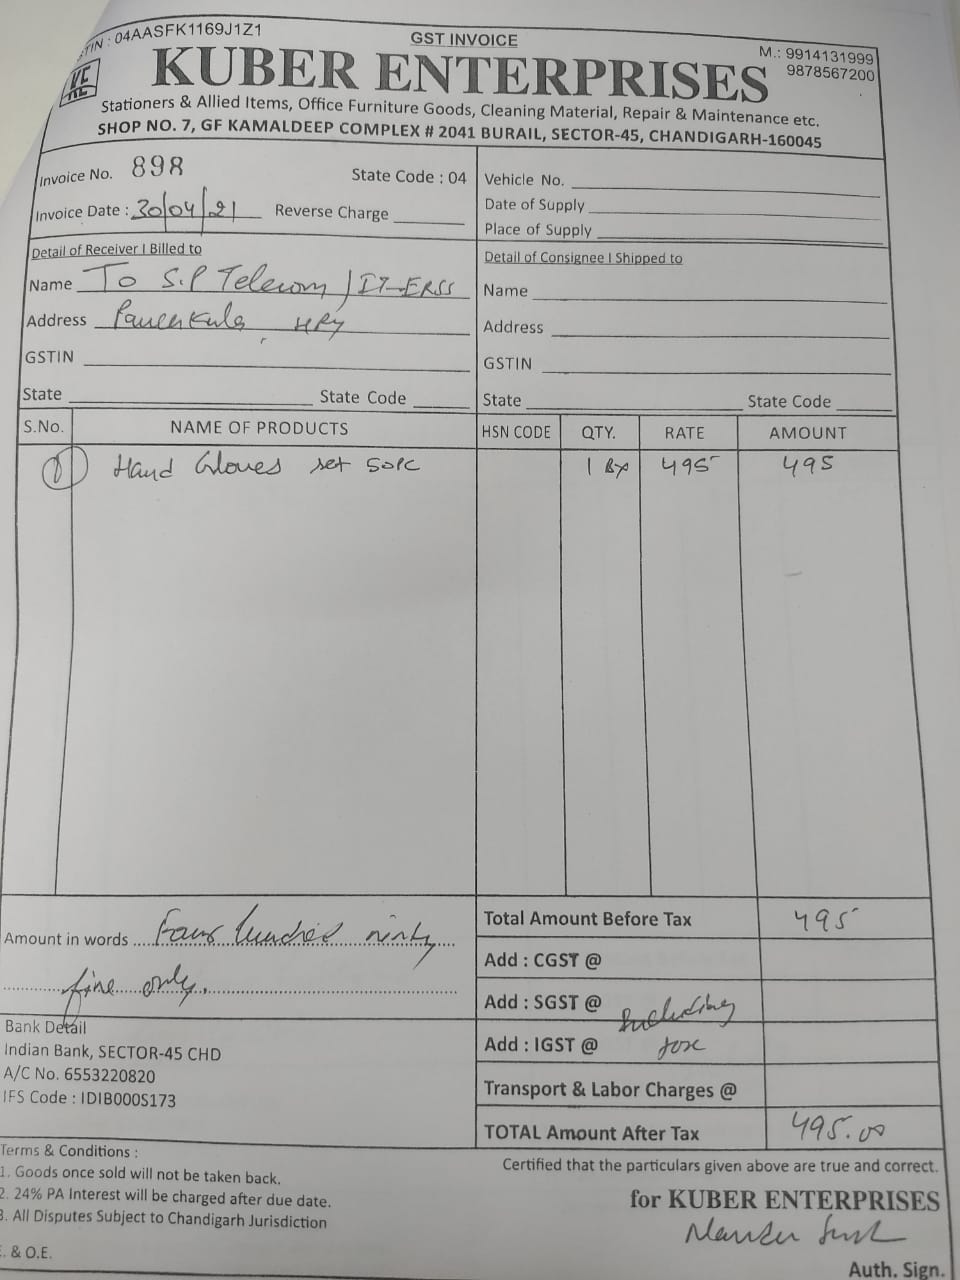 GSTIN : 04AASFK1169J1Z1
GST INVOICE
M.: 9914131999
9878567200
KUBER ENTERPRISES
Stationers & Allied Items, Office Furniture Goods, Cleaning Material, Repair & Maintenance etc.
SHOP NO. 7, GF KAMALDEEP COMPLEX # 2041 BURAIL, SECTOR-45, CHANDIGARH-160045
Invoice No. 898 State Code : 04
Invoice Date : 30/04/21 Reverse Charge
Vehicle No.
Date of Supply
Place of Supply
Detail of Receiver I Billed to
Name To S.P Telecom / IT-ERSS
Address Panchkula HRY
GSTIN
State State Code
Detail of Consignee I Shipped to
Name
Address
GSTIN
State State Code
S.No. NAME OF PRODUCTS HSN CODE QTY. RATE AMOUNT
1 Hand Gloves set 50PC 1 Bx 495 495
Amount in words Four hundred ninty
five only.
Total Amount Before Tax 495
Add : CGST @
Add : SGST @ Including
Add : IGST @ tax
Transport & Labor Charges @
TOTAL Amount After Tax 495.00
Bank Detail
Indian Bank, SECTOR-45 CHD
A/C No. 6553220820
IFS Code : IDIB000S173
Terms & Conditions :
1. Goods once sold will not be taken back.
2. 24% PA Interest will be charged after due date.
3. All Disputes Subject to Chandigarh Jurisdiction
E. & O.E.
Certified that the particulars given above are true and correct.
for KUBER ENTERPRISES
Auth. Sign.